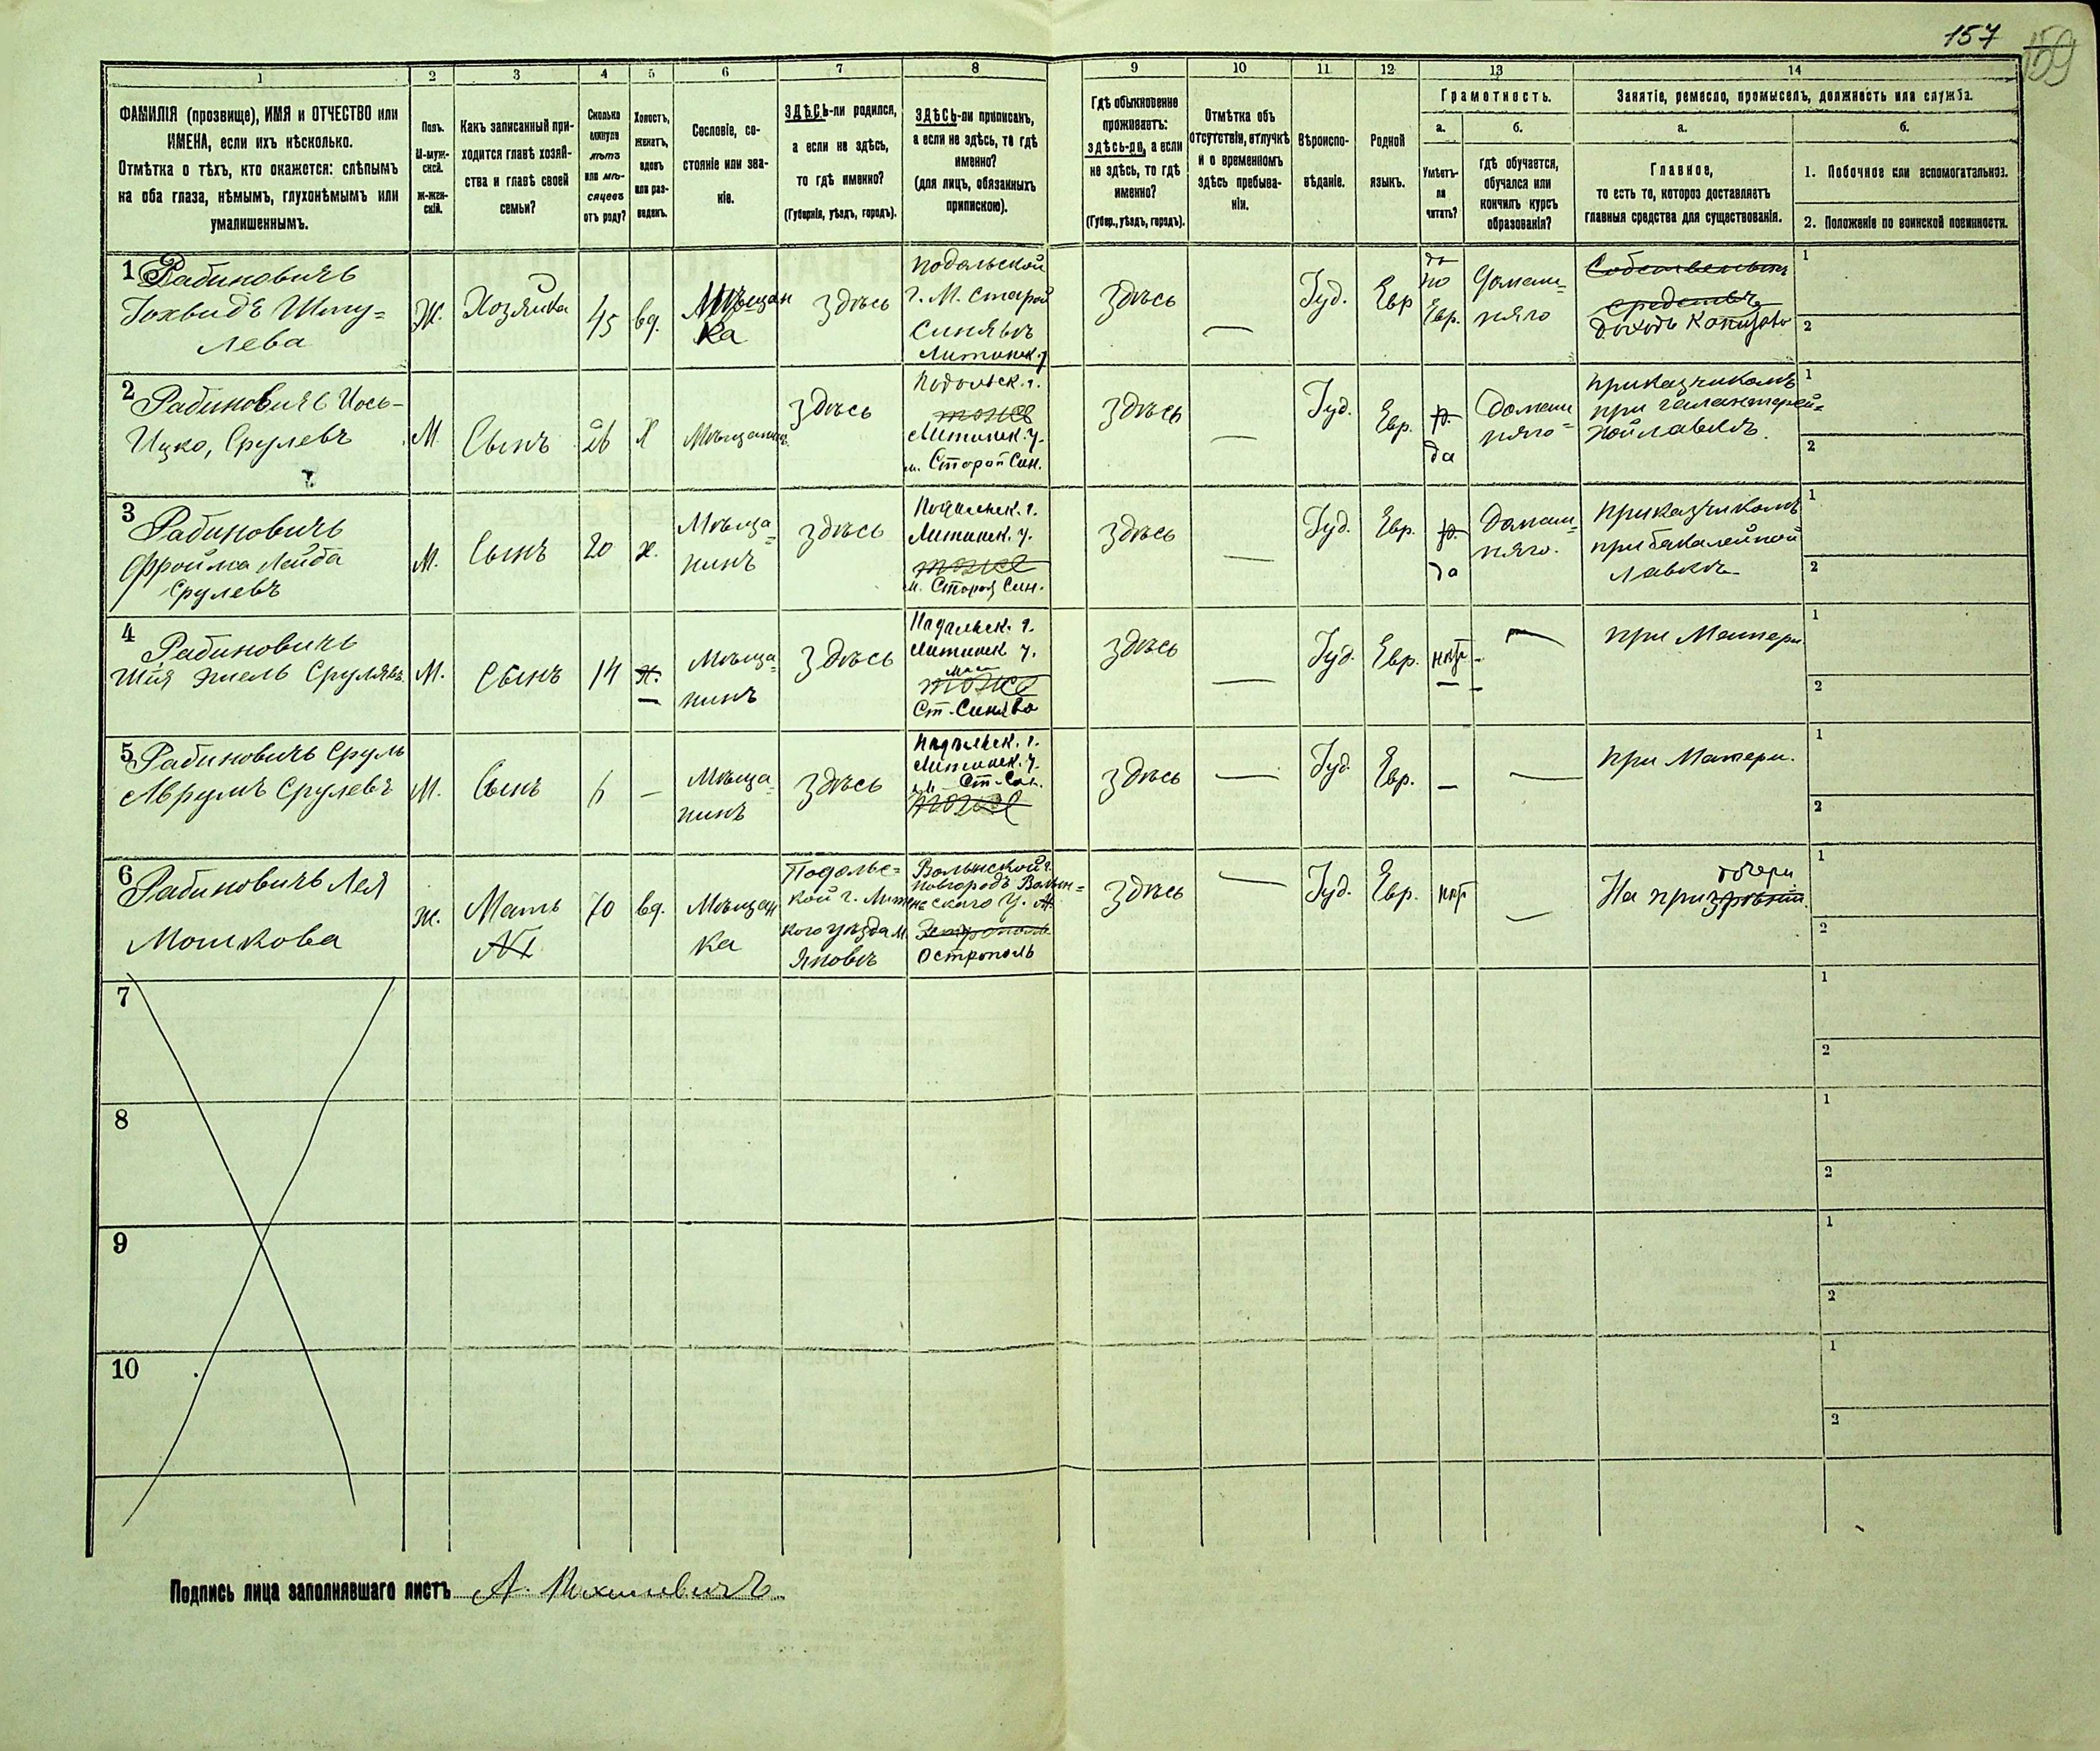 157
159
1 2 3 4 5 6 7 8 9 10 11 12 13 14
ФАМИЛІЯ (прозвище), ИМЯ и ОТЧЕСТВО или
ИМЕНА, если ихъ нѣсколько.
Отмѣтка о тѣхъ, кто окажется: слѣпымъ
на оба глаза, нѣмымъ, глухонѣмымъ или
умалишеннымъ.
Полъ.
М-муж-
ской.
Ж-жен-
скій.
Какъ записанный при-
ходится главѣ хозяй-
ства и главѣ своей
семьи?
Сколько
минуло
лѣтъ
или мѣ-
сяцевъ
отъ роду?
Холостъ,
женатъ,
вдовъ
или раз-
веденъ.
Сословіе, со-
стояніе или зва-
ніе.
ЗДѢСЬ-ли родился,
а если не здѣсь,
то гдѣ именно?
(Губернія, уѣздъ, городъ).
ЗДѢСЬ-ли приписанъ,
а если не здѣсь, то гдѣ
именно?
(для лицъ, обязанныхъ
припискою).
Гдѣ обыкновенно
проживаетъ:
здѣсь-ли, а если
не здѣсь, то гдѣ
именно?
(Губер., уѣздъ, городъ).
Отмѣтка объ
отсутствіи, отлучкѣ
и о временномъ
здѣсь пребыва-
ніи.
Вѣроиспо-
вѣданіе.
Родной
языкъ.
Грамотность.
а.
Умѣетъ-
ли
читать?
б.
гдѣ обучается,
обучался или
кончилъ курсъ
образованія?
Занятіе, ремесло, промыселъ, должность или служба.
а.
Главное,
то есть то, которое доставляетъ
главныя средства для существованія.
б.
1. Побочное или вспомогательное.
2. Положеніе по воинской повинности.
1
Рабиновичъ
Шму=
лева
Ж.
Хозяйка
45
вд.
Мѣщан
ка
здѣсь
Подольской
г. М. Старой
Синявъ
Литинск. у
здѣсь
—
Іуд.
Евр
да
по
Евр.
Домаш=
няго
Собственныя
средствъ
1
2
2
Рабиновичъ Иось-
Ицко, Срулевъ
М
Сынъ
26
Х
Мѣщанинъ
здѣсь
Подольск. г.
тоже
Литинск. у.
м. Старой Син.
здѣсь
—
Іуд.
Евр.
да
Домаш
няго
приказчикомъ
при галантерей=
ной лавкѣ.
1
2
3
Рабиновичъ
Фройма Лейба
Срулевъ
М.
Сынъ
20
х.
Мѣща=
нинъ
здѣсь
Подольск. г.
Литинск. у.
тоже
м. Старой Син.
здѣсь
—
Іуд.
Евр.
да
Домаш=
няго.
Приказчикомъ
при бакалейной
лавкѣ
1
2
4
Рабиновичъ
М.
Сынъ
14
х.
—
Мѣща=
нинъ
здѣсь
Подольск. г.
Литинск у.
тоже
Ст. Синява
здѣсь
—
Іуд.
Евр.
нѣт
—
при Матери
1
2
5
Рабиновичъ Сруль
Аврумъ Срулевъ
М.
Сынъ
6
—
Мѣща=
нинъ
здѣсь
Подольск. г.
Литинск. у.
м. Ст-Син.
тоже
здѣсь
—
Іуд.
Евр.
—
—
при Матери.
1
2
6
Рабиновичъ Лея
Мошкова
ж.
Мать
№1
70
вд.
Мѣщан
ка
Подольс=
кой г. Литинс
кого уѣзда м.
Яновъ
Волынской г.
Новгородъ Волын=
скаго у. м.
Острополь
здѣсь
—
Іуд.
Евр.
нѣт
—
дочери
На призрѣніи
1
2
7
1
2
8
1
2
9
1
2
10
1
2
Подпись лица заполнявшаго листъ